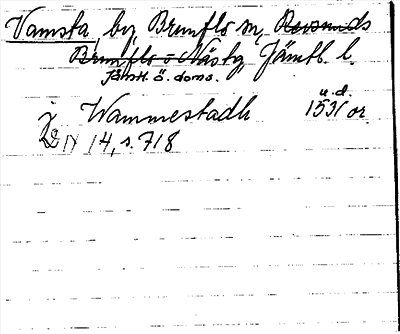 Vamsta by, Brunflo sn, Revsunds
Brunflo o Näs tg Jämtl. l.
Jämtl. ö. doms.
i Wammestadh u.d. 1531 or.
IV 14, s. 718